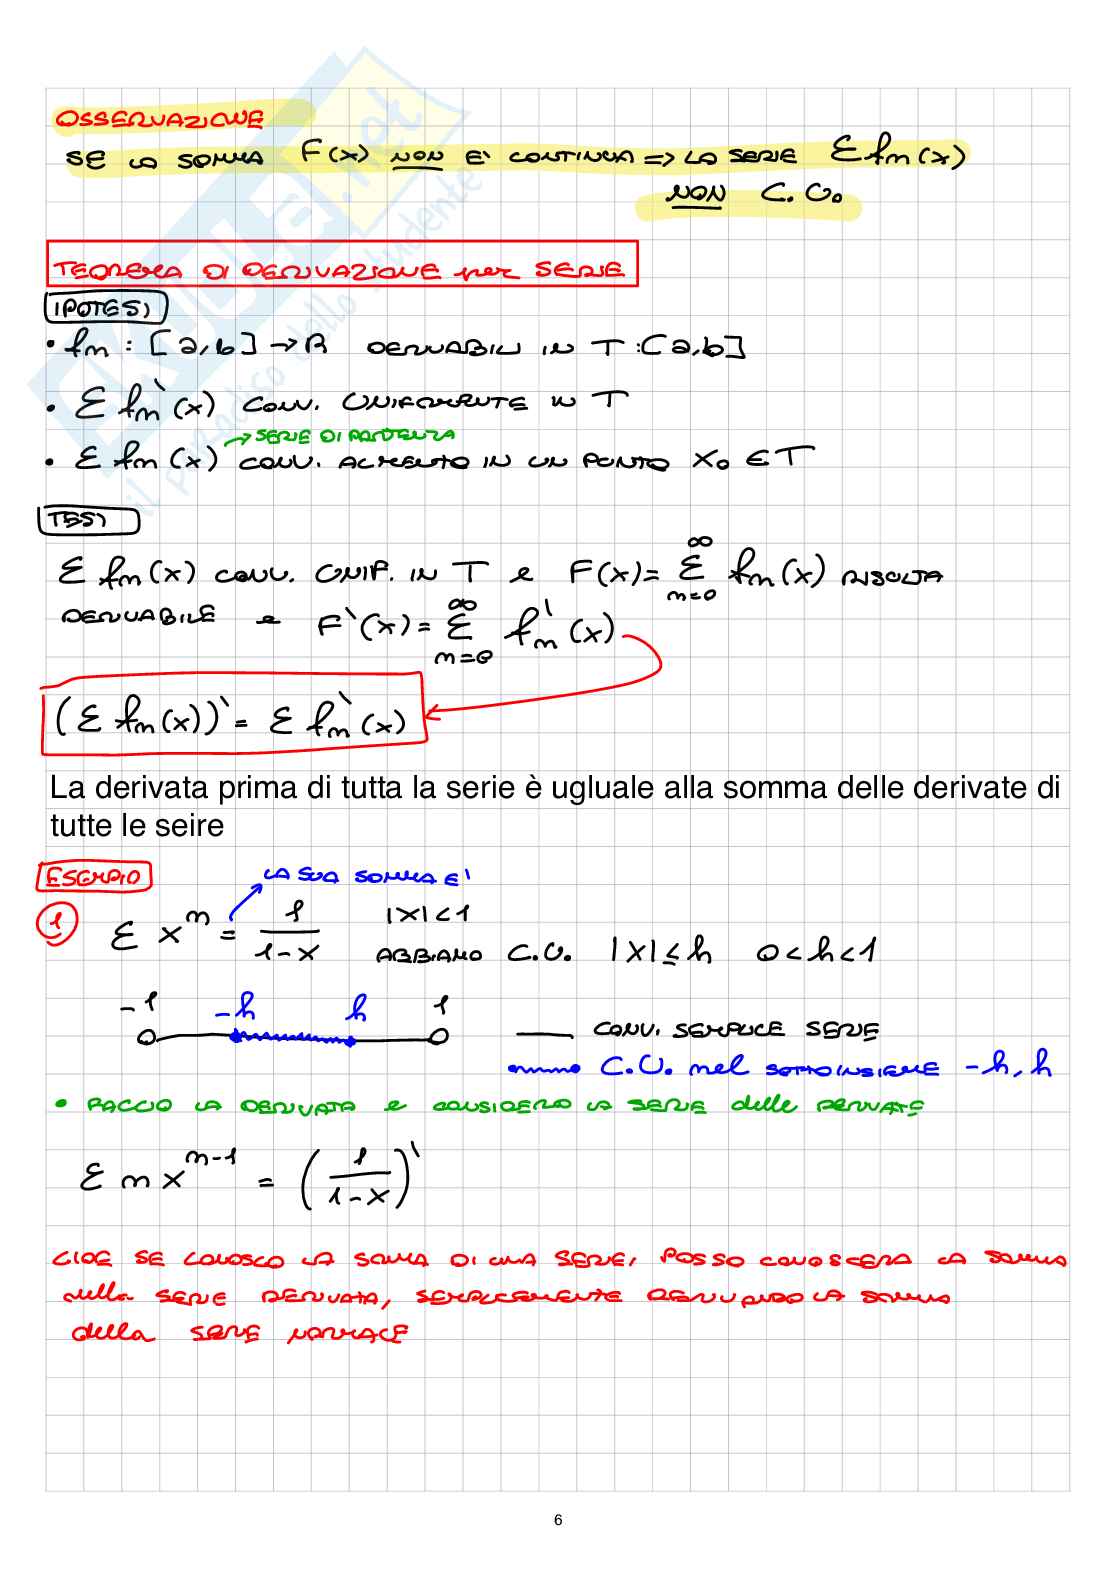 OSSERVAZIONE
SE LA SOMMA F(x) NON E' CONTINUA => LA SERIE Σ fn(x)
NON C.U.
TEOREMA DI DERIVAZIONE per SERIE
IPOTESI
• fn : [a,b] → R DERIVABILI IN T:[a,b]
• Σ fn'(x) CONV. UNIFORMEMENTE IN T
→ SERIE DI PARTENZA
• Σ fn(x) CONV. ALMENO IN UN PUNTO x₀ ∈ T
TESI
Σ fn(x) CONV. UNIF. IN T e F(x) = Σ_{n=0}^{∞} fn(x) RISULTA
DERIVABILE e F'(x) = Σ_{n=0}^{∞} fn'(x)
(Σ fn(x))' = Σ fn'(x)
La derivata prima di tutta la serie è ugluale alla somma delle derivate di
tutte le seire
ESEMPIO
LA SUA SOMMA E'
1 Σ x^n = 1/(1-x) |x|<1
ABBIAMO C.U. |x| ≤ h 0<h<1
-1 -h h 1
CONV. SEMPLICE SERIE
C.U. nel SOTTOINSIEME -h, h
• FACCIO LA DERIVATA e CONSIDERO LA SERIE delle DERIVATE
Σ n x^{n-1} = (1/(1-x))'
CIOE SE CONOSCO LA SOMMA DI UNA SERIE, POSSO CONOSCERE LA SOMMA
della SERIE DERIVATA, SEMPLICEMENTE DERIVANDO LA SOMMA
della SERIE NORMALE
6
SKUOLA.net
il paradiso dello studente